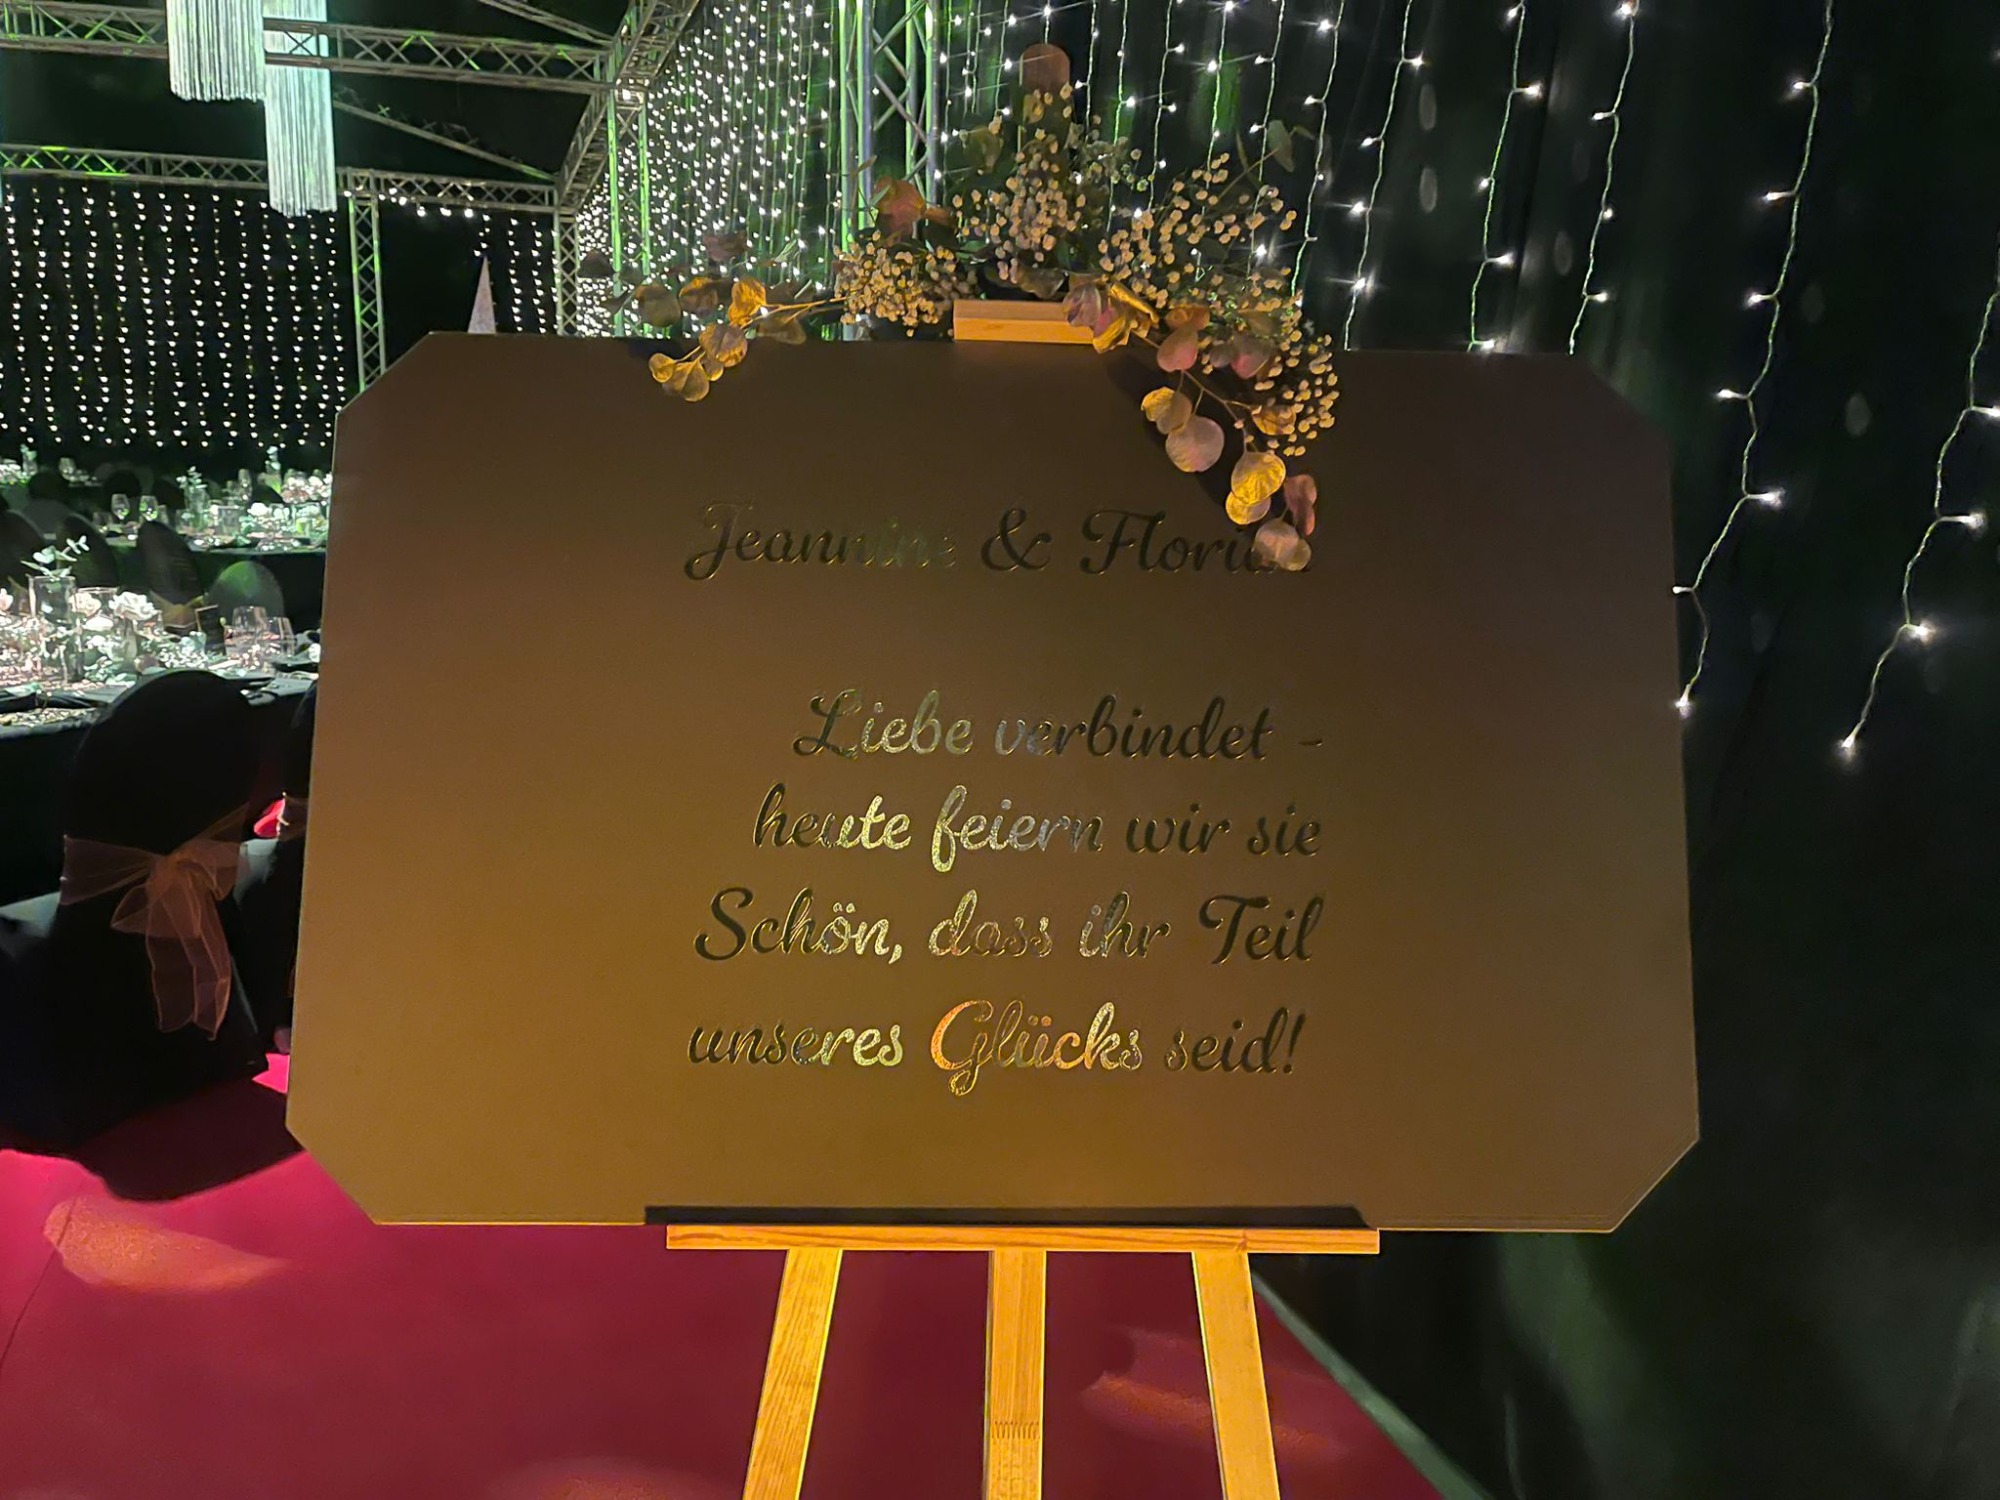 Jeannine & Florian
Liebe verbindet -
heute feiern wir sie
Schön, dass ihr Teil
unseres Glücks seid!